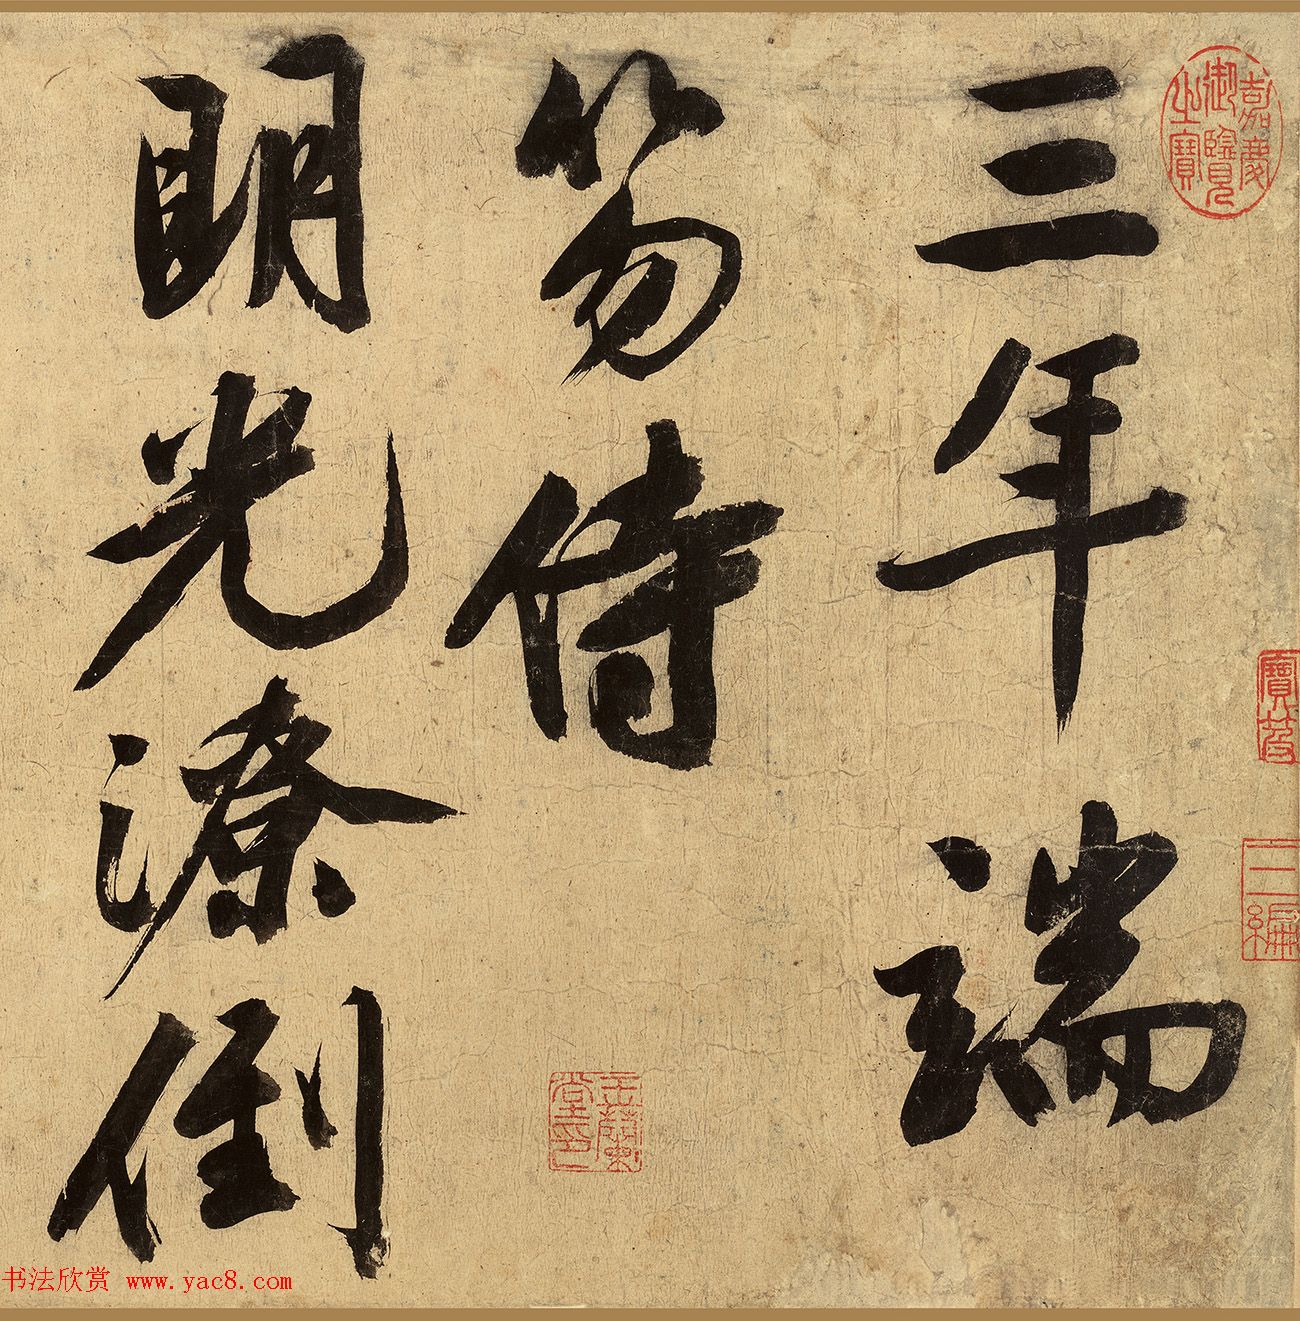 三年端
笏侍
明光潦倒
嘉慶
御覽
之寶
寶笈
三編
玉蘭
堂印
书法欣赏 www.yac8.com